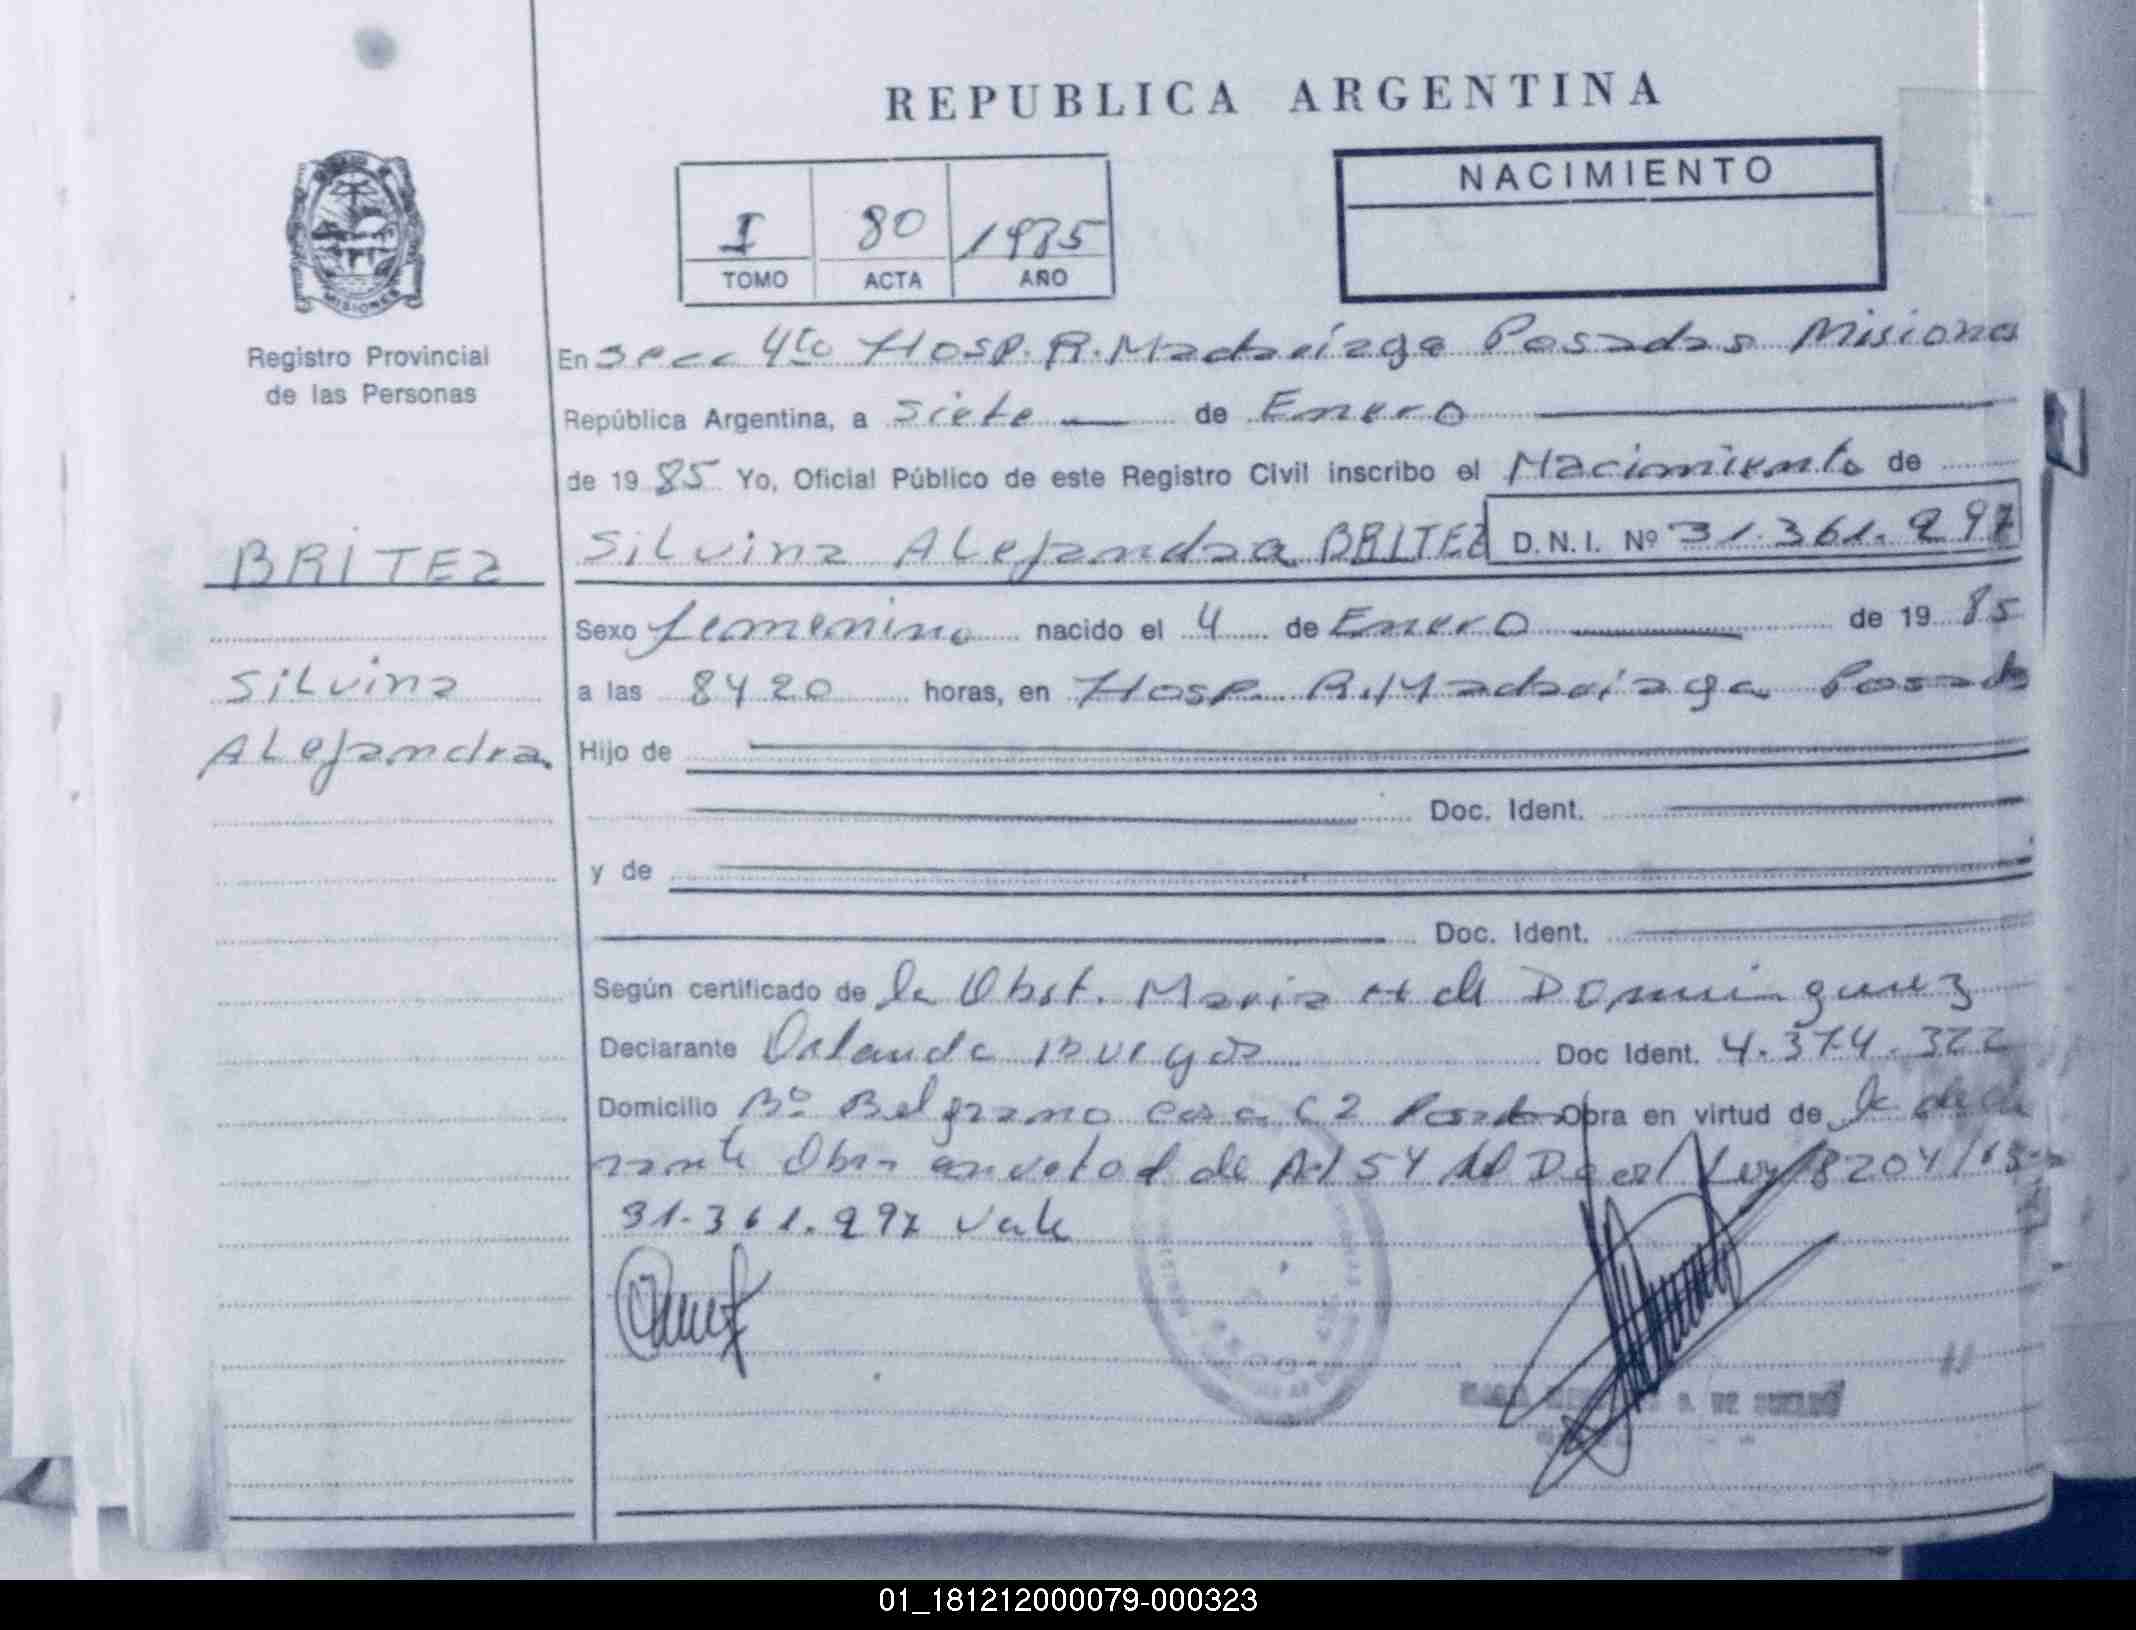 REPUBLICA ARGENTINA
NACIMIENTO
I 80 1985
TOMO ACTA AÑO
MISIONES
Registro Provincial
de las Personas
En Secc 4to Hosp. R. Madariaga Posadas Misiones
República Argentina, a siete de Enero
de 1985 Yo, Oficial Público de este Registro Civil inscribo el Nacimiento de
BRITEZ
Silvina
Alejandra
Silvina Alejandra BRITEZ D.N.I. Nº 31.361.297
Sexo femenino nacido el 4 de Enero de 1985
a las 8y20 horas, en Hosp. R. Madariaga Posadas
Hijo de
Doc. Ident.
y de
Doc. Ident.
Según certificado de la Obst. Maria H de Dominguez
Declarante Orlando Doc Ident. 4.374.322
Domicilio Bº Belgrano casa 62 Posadas Obra en virtud de la decla
rante Obra en virtud de Art 54 del Decret Ley 8204/63
31.361.297 Vale
A. DE
01_181212000079-000323